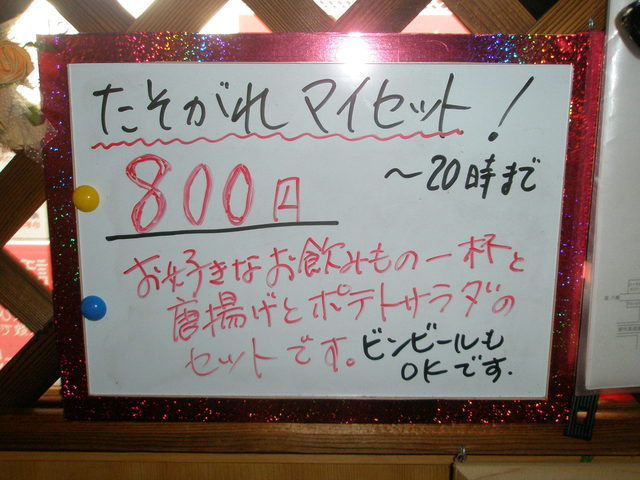 たそがれマイセット！
800円
～20時まで
お好きなお飲みもの一杯と
唐揚げとポテトサラダの
セットです。ビンビールも
OKです.